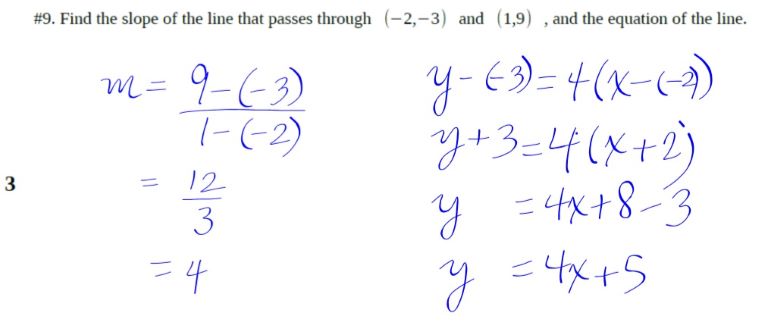 #9. Find the slope of the line that passes through (−2,−3) and (1,9) , and the equation of the line.
m = 9-(-3)
1-(-2)
= 12
3
= 4
3
y-(-3)=4(x-(-2))
y+3=4(x+2)
y =4x+8-3
y =4x+5